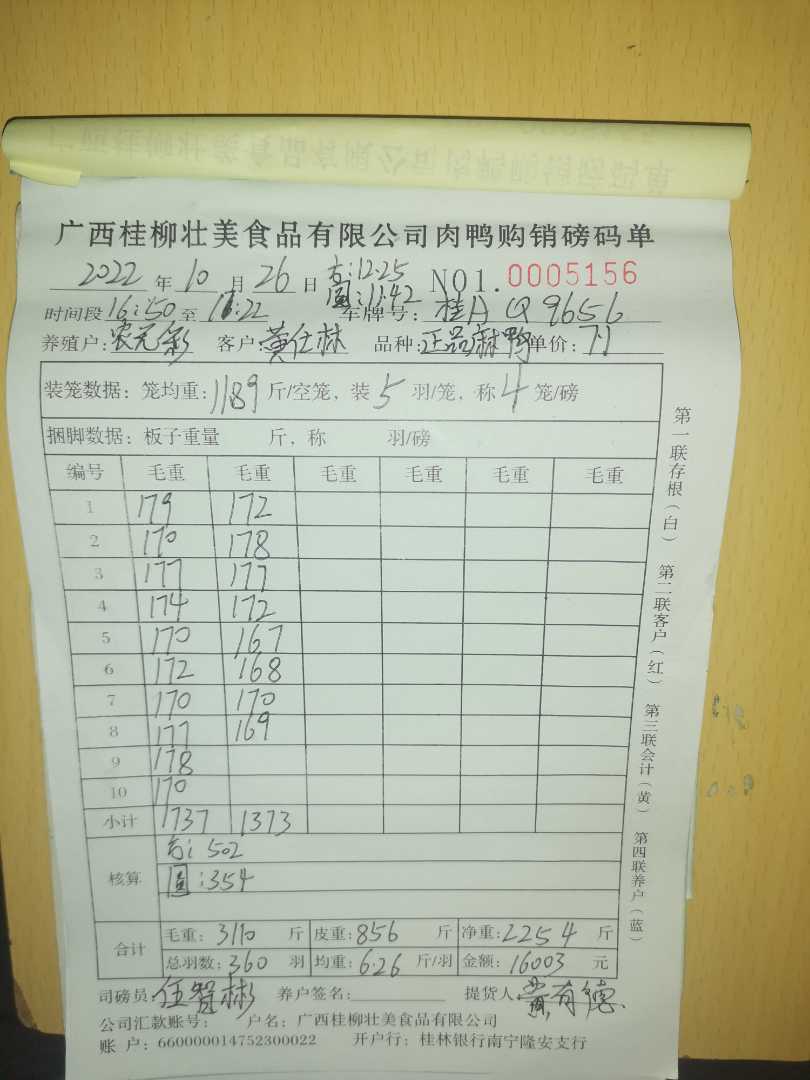 广西桂柳壮美食品有限公司肉鸭购销磅码单
2022 年 10 月 26 日 方:12.25 NO1.0005156
圆:11.42
时间段 16:50 至 17:22 车牌号: 桂A Q9656
养殖户: 农元彩 客户: 黄仕林 品种: 正品麻鸭 单价: 7.1
装笼数据: 笼均重: 11.89 斤/空笼, 装 5 羽/笼, 称 4 笼/磅
捆脚数据: 板子重量 斤, 称 羽/磅
编号 毛重 毛重 毛重 毛重 毛重 毛重
1 179 172
2 170 178
3 177 177
4 174 172
5 170 167
6 172 168
7 170 170
8 177 169
9 178
10 170
小计 1737 1373
核算 方: 502
圆: 354
合计 毛重: 3110 斤 皮重: 856 斤 净重: 2254 斤
总羽数: 360 羽 均重: 6.26 斤/羽 金额: 16003 元
司磅员: 伍智彬 养户签名: 提货人 黄有德
公司汇款账号: 户名: 广西桂柳壮美食品有限公司
账 户: 660000014752300022 开户行: 桂林银行南宁隆安支行
第一联存根(白) 第二联客户(红) 第三联会计(黄) 第四联养户(蓝)